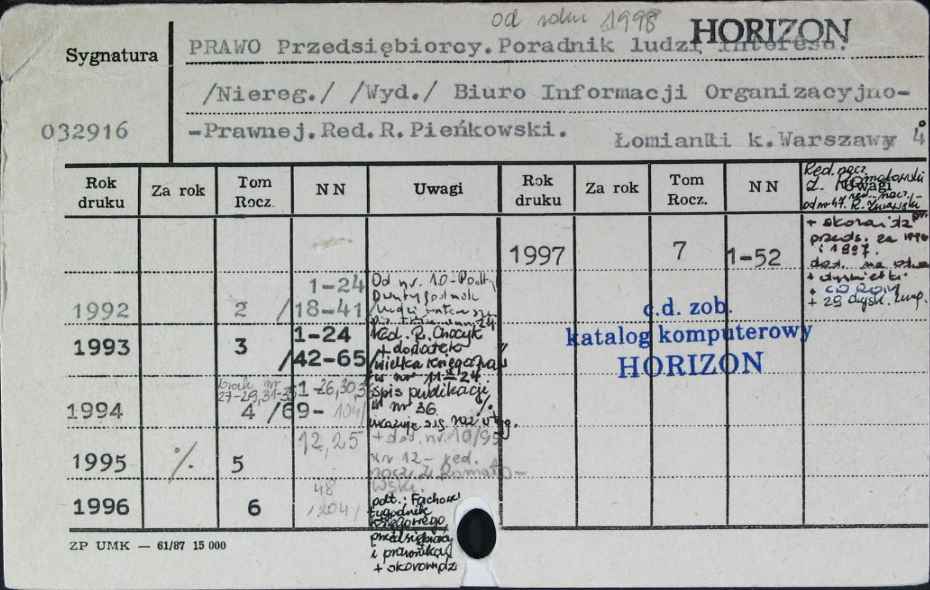 od roku 1998 HORIZON
Sygnatura
PRAWO Przedsiębiorcy. Poradnik ludzi interesu.
/Niereg./ /Wyd./ Biuro Informacji Organizacyjno-
032916
-Prawnej. Red. R. Pieńkowski.
Łomianki k. Warszawy 4
Rok druku Za rok Tom Rocz. NN Uwagi Rok druku Za rok Tom Rocz. NN Uwagi
Red. nacz.
od nr 47. R.
1997 7 1-52
+ skorowidz
przeds. za 1996
i 1997.
+ dyskietki
+ CD ROMy
1-24 Od nr. 10-
1992 2 /18-41/
1-24 Red. R.
1993 3 + dodatek
/42-65/ wielka księga
w nr 11-24.
brak nr
27-29, 31-35 1-26,30, spis publikacji
1994 4 /69-104/ w nr 36. %
ukazuje się niereg.
12, 25 + dod. nr 10/95
1995 % 5 nr 12- red.
nacz. Z.
48
1996 6 /204/ podt.: Fachowy
tygodnik
księgowego,
przedsiębiorcy
i prawnika
+ skorowidz
c.d. zob.
katalog komputerowy
HORIZON
ZP UMK — 61/87 15 000